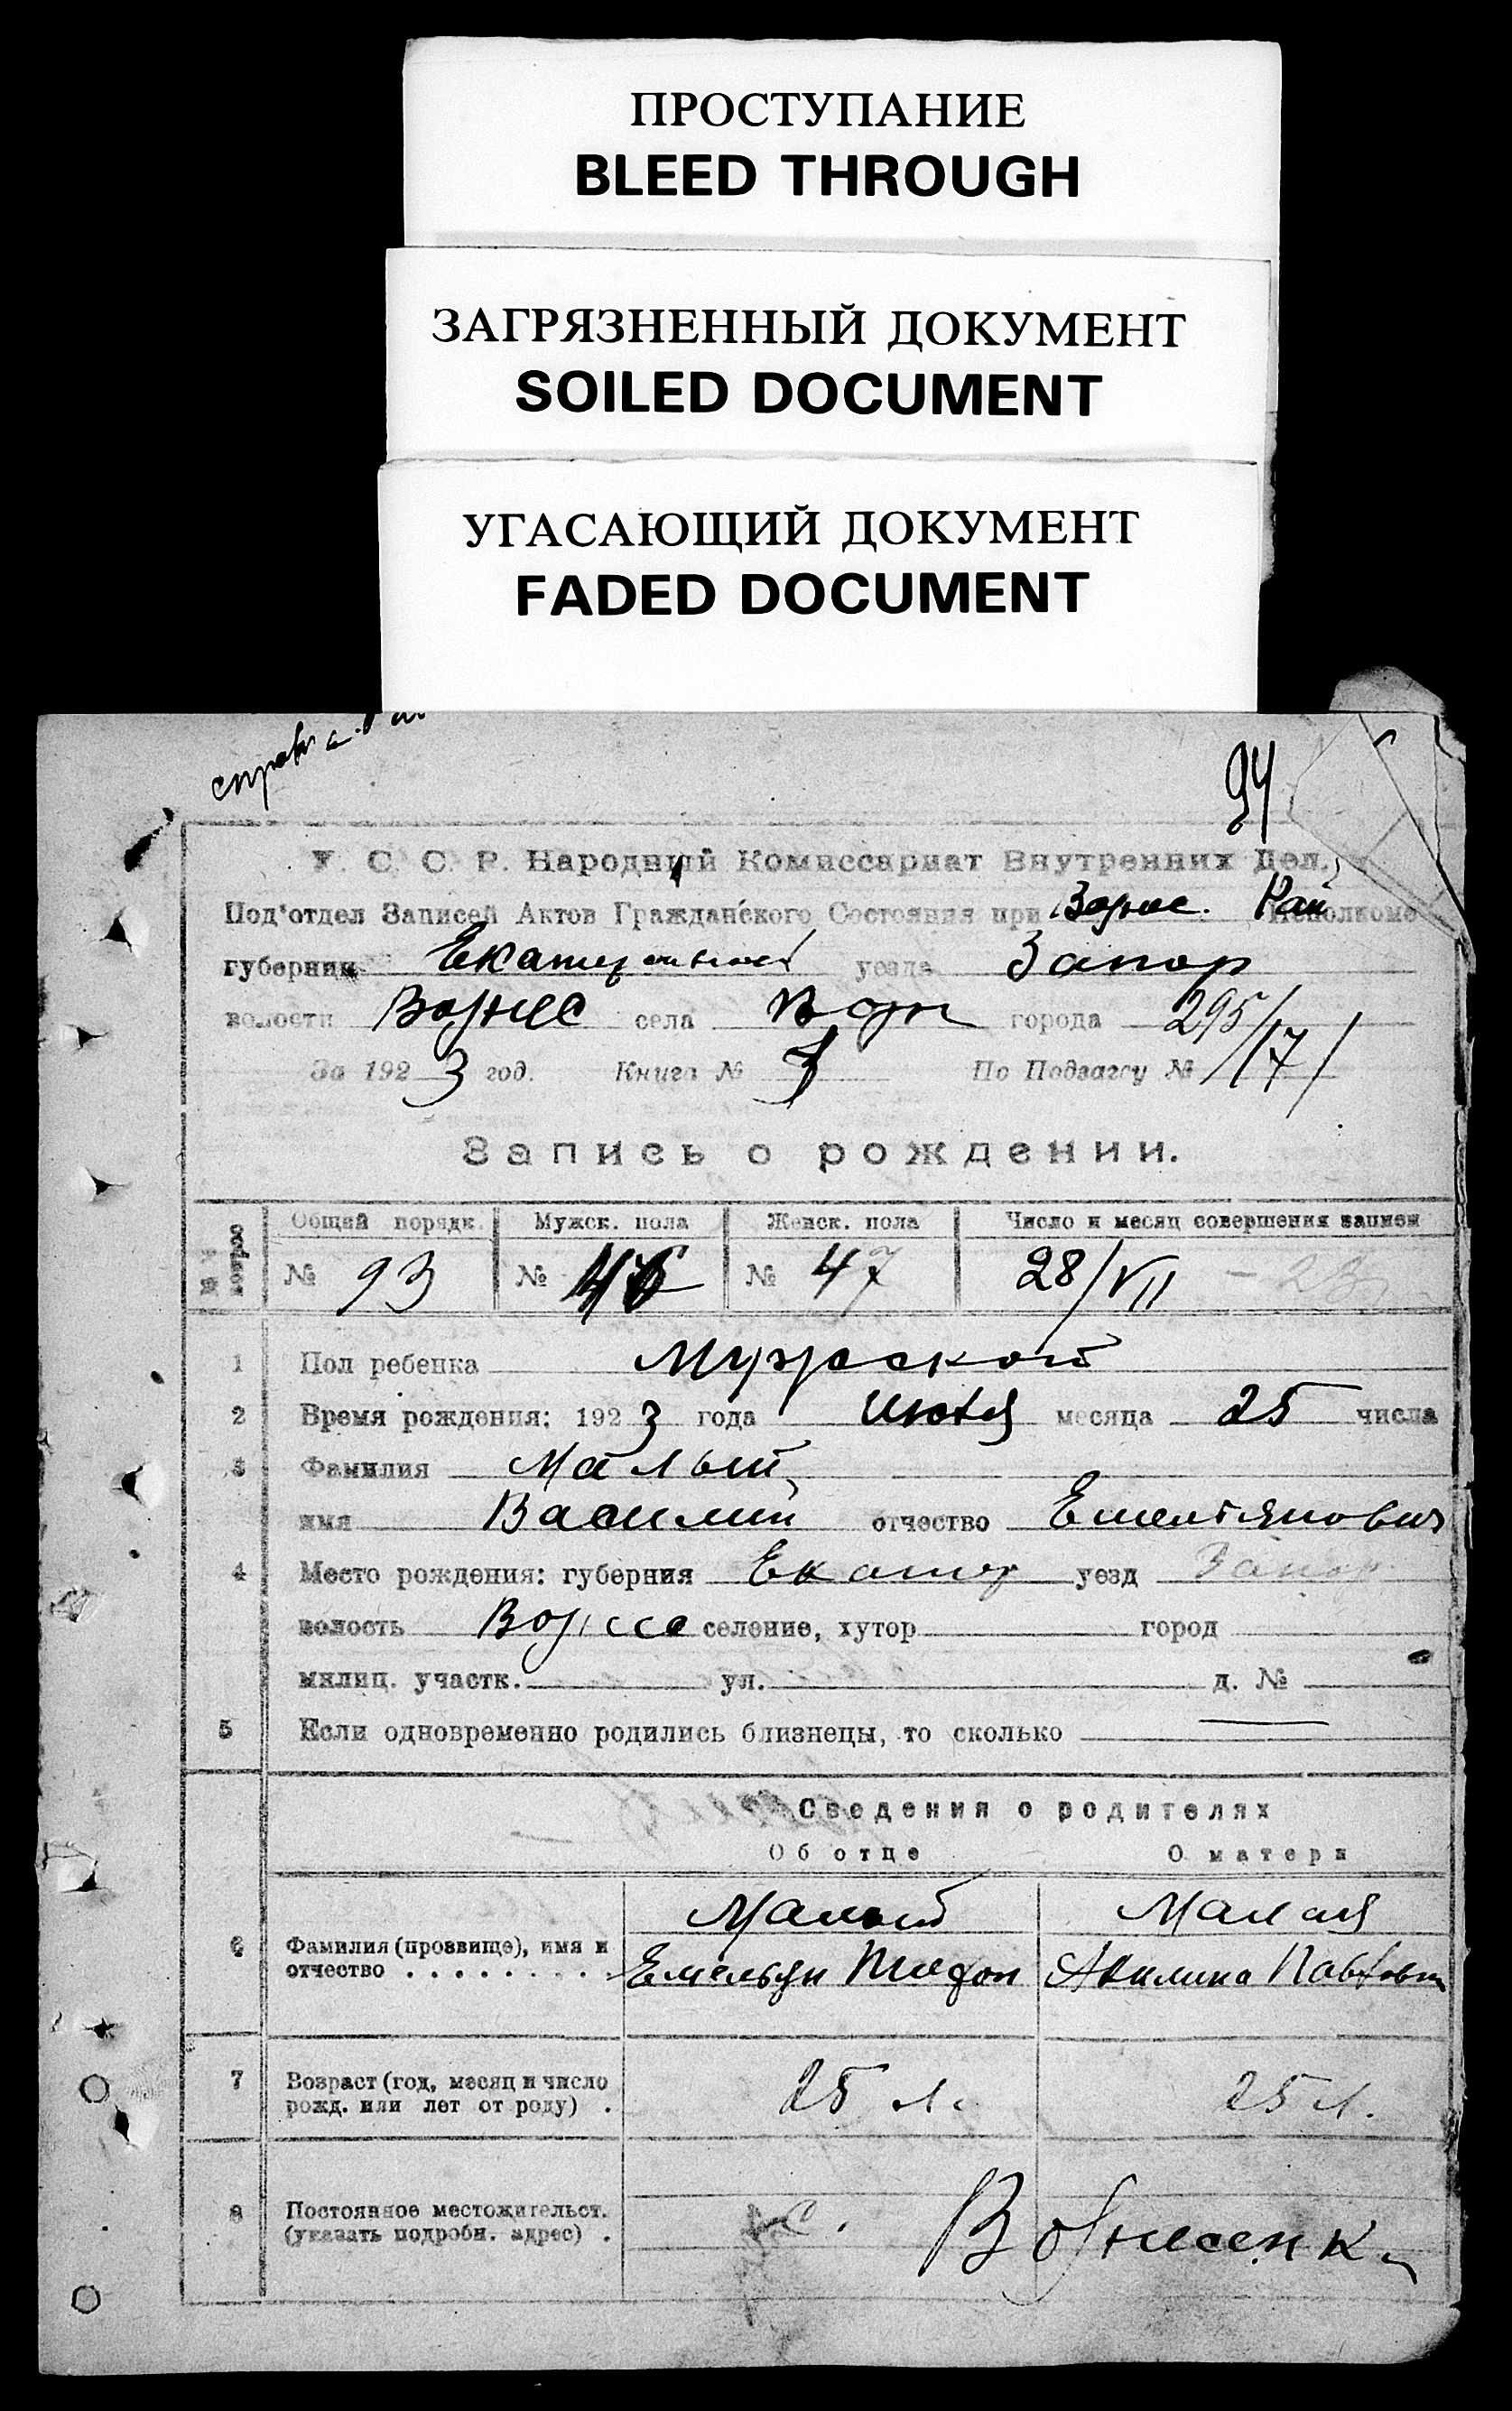 ПРОСТУПАНИЕ
BLEED THROUGH
ЗАГРЯЗНЕННЫЙ ДОКУМЕНТ
SOILED DOCUMENT
УГАСАЮЩИЙ ДОКУМЕНТ
FADED DOCUMENT
94
У. С. С. Р. Народный Комиссариат Внутренних Дел.
Под'отдел Записей Актов Гражданского Состояния при Вознес. Рай Исполкоме
губернии уезда Запор
волости Вознес села Возн города 295/
За 1923 год. Книга № По Подзагсу № /17/
Запись о рождении.
Общий порядк. Мужск. пола Женск. пола Число и месяц совершения записи
№ 93 № 46 № 47 28/VII
1 Пол ребенка Мужской
2 Время рождения: 1923 года Июля месяца 25 числа
3 Фамилия Малый
имя Василий отчество Емельянович
4 Место рождения: губерния Екатер уезд Запор.
волость Вознесе селение, хутор город
милиц. участк. ул. д. №
5 Если одновременно родились близнецы, то сколько —
Сведения о родителях
Об отце О матери
Малый Малая
6 Фамилия (прозвище), имя и
отчество . . . . . . . . Емельян Акилина Павловн
7 Возраст (год, месяц и число
рожд. или лет от роду) . 25 л. 25 л.
8 Постоянное местожительст.
(указать подробн. адрес) . с. Вознесенк